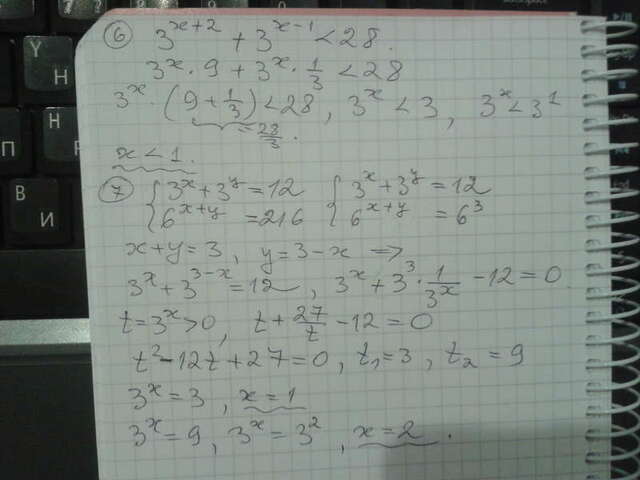 ⑥ 3^{x+2} + 3^{x-1} < 28.
3^x · 9 + 3^x · 1/3 < 28
3^x · (9 + 1/3) < 28, 3^x < 3, 3^x < 3^1
= 28/3.
x < 1.
⑦ { 3^x + 3^y = 12 { 3^x + 3^y = 12
6^{x+y} = 216 6^{x+y} = 6^3
x + y = 3, y = 3 - x ⇒
3^x + 3^{3-x} = 12, 3^x + 3^3 · 1/3^x - 12 = 0
t = 3^x > 0, t + 27/t - 12 = 0
t^2 - 12t + 27 = 0, t_1 = 3, t_2 = 9
3^x = 3, x = 1
3^x = 9, 3^x = 3^2, x = 2.
Y
Н
H
П
Р
В
И